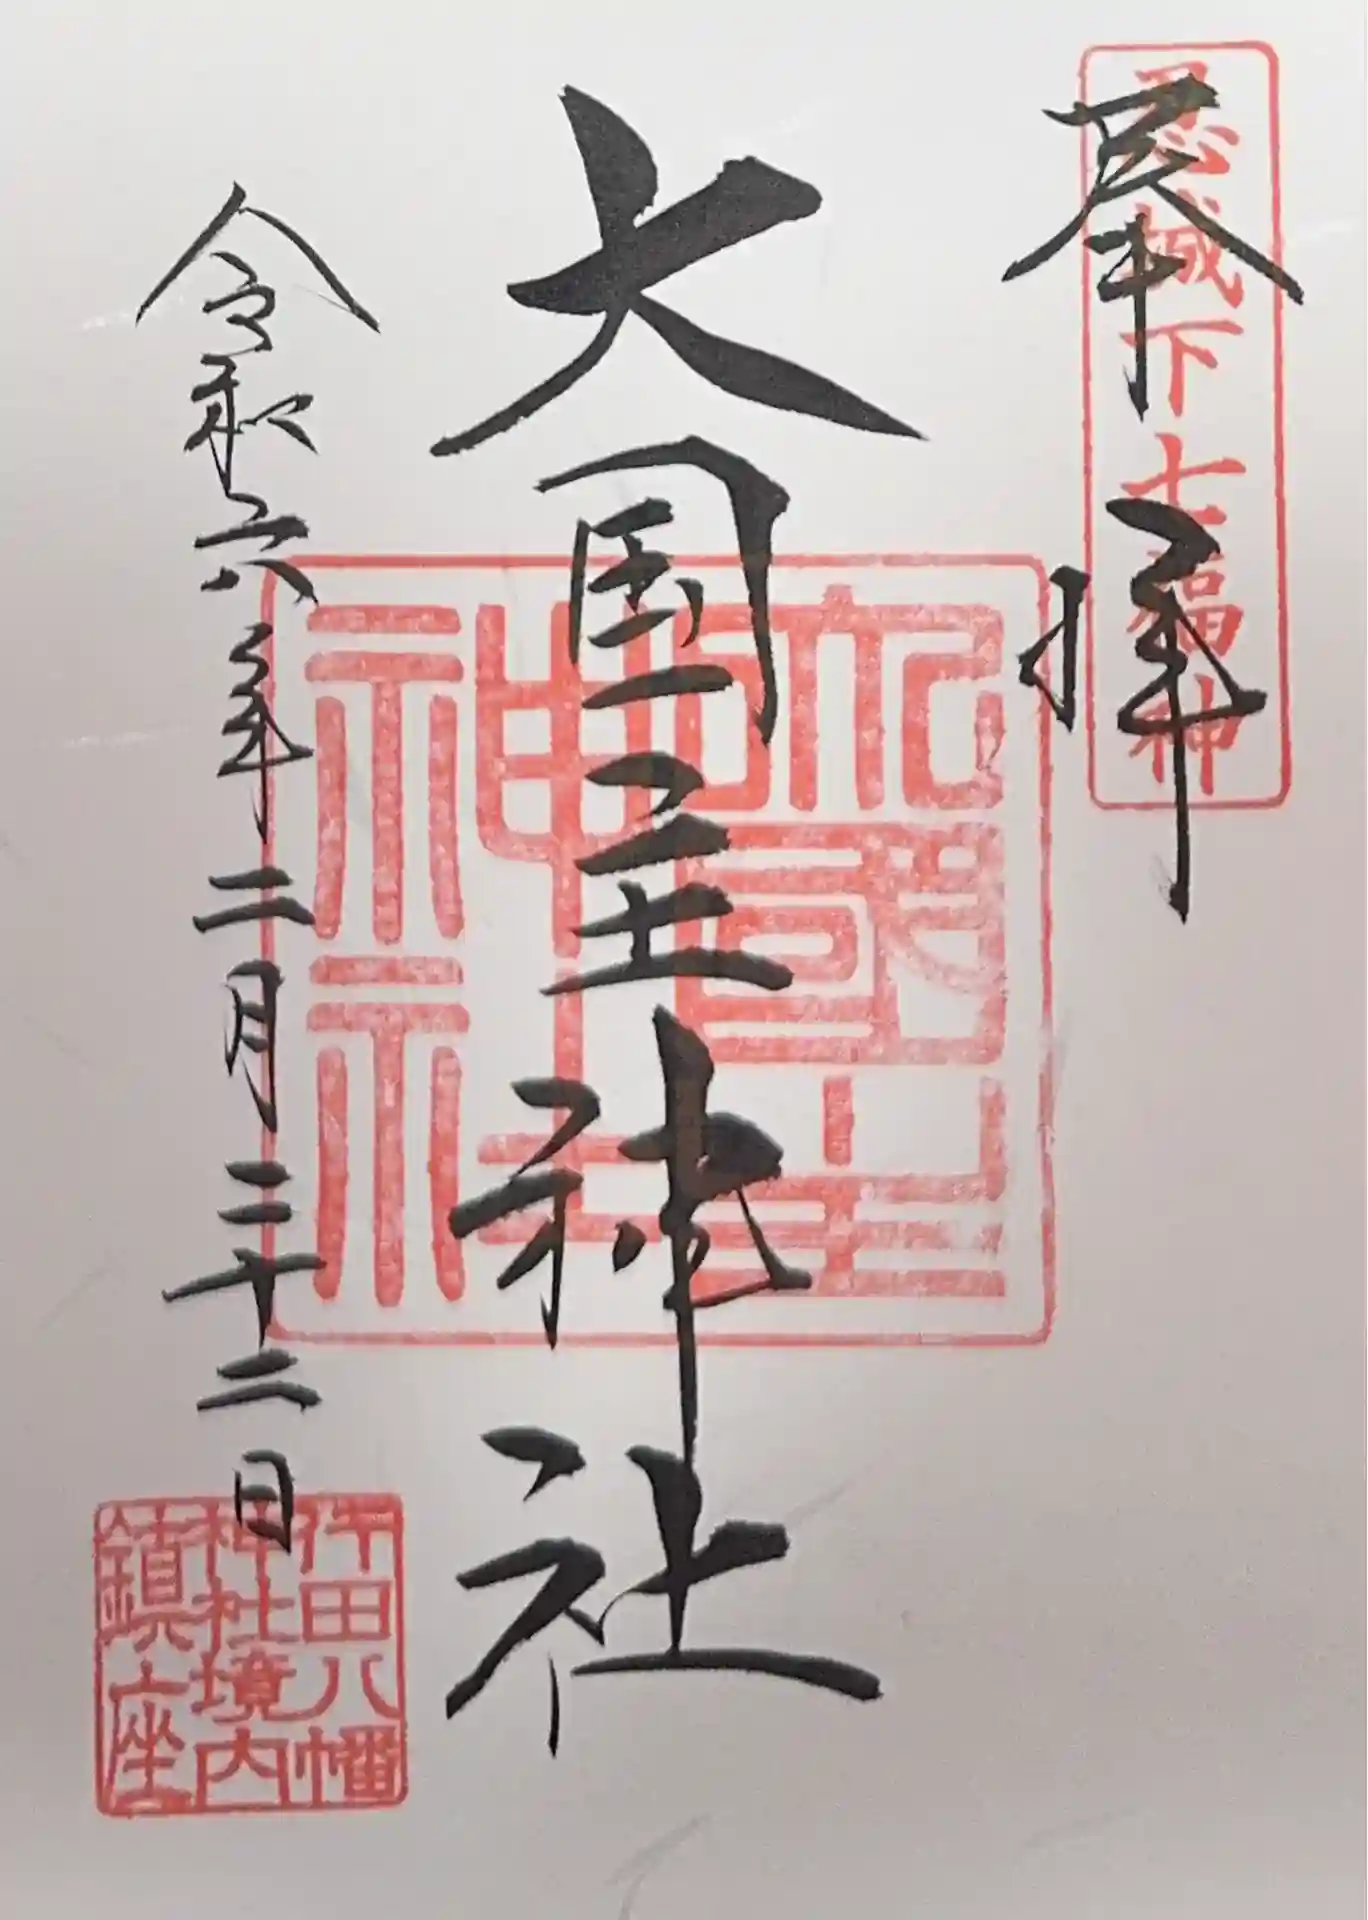 忍城下七福神
奉拝
大国主神社
大國主
神社
令和六年二月二十二日
行田八幡
神社境内
鎮座